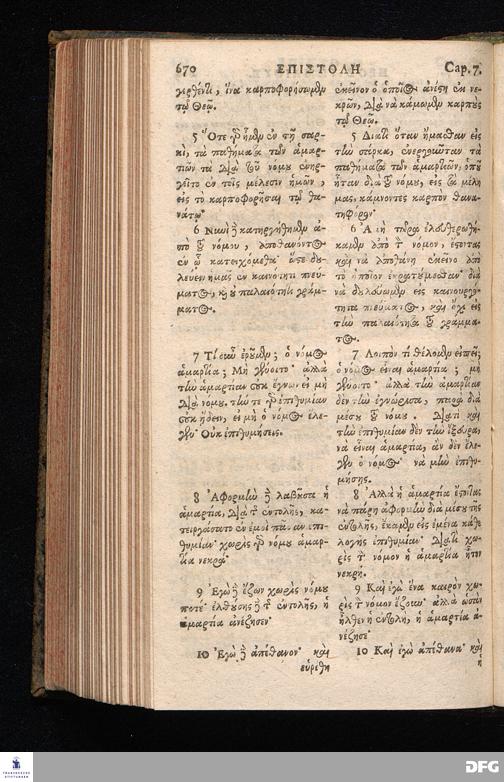 670 ΕΠΙΣΤΟΛΗ Cap. 7.
γερθέντι, ἵνα καρποφορήσωμεν
τῷ Θεῷ.
5 Ὅτε γὰρ ἦμεν ἐν τῇ σαρ-
κὶ, τὰ παθήματα τῶν ἁμαρ-
τιῶν τὰ διὰ τοῦ νόμου ἐνηρ-
γεῖτο ἐν τοῖς μέλεσιν ἡμῶν,
εἰς τὸ καρποφορῆσαι τῷ θα-
νάτῳ·
6 Νυνὶ δὲ κατηργήθημεν ἀ-
πὸ τοῦ νόμου, ἀποθανόντος
ἐν ᾧ κατειχόμεθα· ὥστε δου-
λεύειν ἡμᾶς ἐν καινότητι πνεύ-
ματος, καὶ οὐ παλαιότητι γράμ-
ματος.
7 Τί οὖν ἐροῦμεν; ὁ νόμος
ἁμαρτία; Μὴ γένοιτο· ἀλλὰ
τὴν ἁμαρτίαν οὐκ ἔγνων εἰ μὴ
διὰ νόμου. τήν τε γὰρ ἐπιθυμίαν
οὐκ ᾔδειν, εἰ μὴ ὁ νόμος ἔλε-
γεν· Οὐκ ἐπιθυμήσεις.
8 Ἀφορμὴν δὲ λαβοῦσα ἡ
ἁμαρτία, διὰ τῆς ἐντολῆς, κα-
τειργάσατο ἐν ἐμοὶ πᾶσαν ἐπι-
θυμίαν· χωρὶς γὰρ νόμου ἁμαρ-
τία νεκρά·
9 Ἐγὼ δὲ ἔζων χωρὶς νόμου
ποτέ· ἐλθούσης δὲ τῆς ἐντολῆς, ἡ
ἁμαρτία ἀνέζησεν·
10 Ἐγὼ δὲ ἀπέθανον· καὶ
εὑρέθη
ἐκεῖνον ὁ ὁποῖος ἀνέστη ἐκ νε-
κρῶν, διὰ νὰ κάμωμεν καρποὺς
τῷ Θεῷ.
5 Διατὶ ὅταν ἤμασθαν εἰς
τὴν σάρκα, ἐνεργῶνταν τὰ
παθήματα τῶν ἁμαρτιῶν, ὁποῦ
ἦταν διὰ τοῦ νόμου, εἰς τὰ μέλη
μας, κάμνοντες καρπὸν θανα-
τηφόρον·
6 Ἀμὴ τώρα ἐλευθερωθή-
καμεν ἀπὸ τὸν νόμον, ἔστοντας
καὶ νὰ ἀποθάνῃ ἐκεῖνο ἀπὸ
τὸ ὁποῖον ἐκρατούμεσθαν· διὰ
νὰ δουλεύωμεν εἰς καινουργό-
τητα πνεύματος, καὶ ὄχι εἰς
τὴν παλαιότητα τοῦ γράμμα-
τος.
7 Λοιπὸν τί θέλομεν εἰπεῖ;
ὁ νόμος εἶναι ἁμαρτία; μὴ
γένοιτο· ἀλλὰ τὴν ἁμαρτίαν
δὲν τὴν ἐγνώρισα, παρὰ διὰ
μέσου τοῦ νόμου. Διατὶ καὶ
τὴν ἐπιθυμίαν δὲν τὴν ἤξευρα,
νὰ εἶναι ἁμαρτία, ἂν δὲν ἔλε-
γεν ὁ νόμος· νὰ μὴν ἐπιθυ-
μήσῃς.
8 Ἀλλὰ ἡ ἁμαρτία ἔστοντας
νὰ πάρῃ ἀφορμὴν διὰ μέσου τῆς
ἐντολῆς, ἔκαμεν εἰς ἐμένα κάθε
λογῆς ἐπιθυμίαν· Διατὶ χω-
ρὶς τὸν νόμον ἡ ἁμαρτία ἦτον
νεκρή.
9 Καὶ ἐγὼ ἕνα καιρὸν χω-
ρὶς τὸν νόμον ἔζουν· ἀλλὰ ὡσὰν
ἦλθεν ἡ ἐντολὴ, ἡ ἁμαρτία ἀ-
νέζησε·
10 Καὶ ἐγὼ ἀπέθανα· καὶ
ἡ
DFG